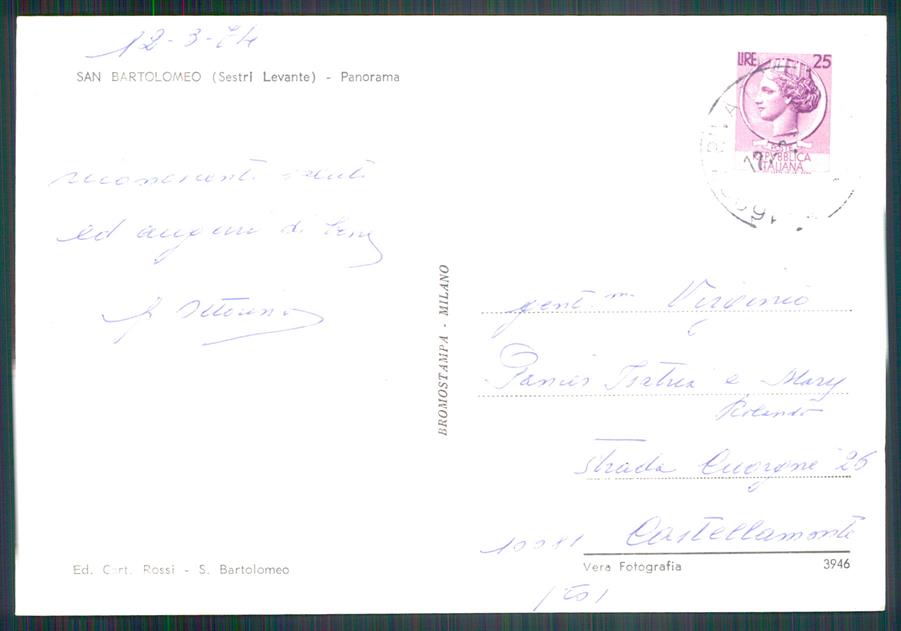 12-3-74
SAN BARTOLOMEO (Sestri Levante) - Panorama
LIRE 25
POSTE
REPVBBLICA
ITALIANA
riconoscenti saluti
ed auguri di
BROMOSTAMPA - MILANO
gent.mi Virginio
e Mary
Rolando
Strada 26
10081 Castellamonte
(To)
Ed. Cart. Rossi - S. Bartolomeo
Vera Fotografia 3946